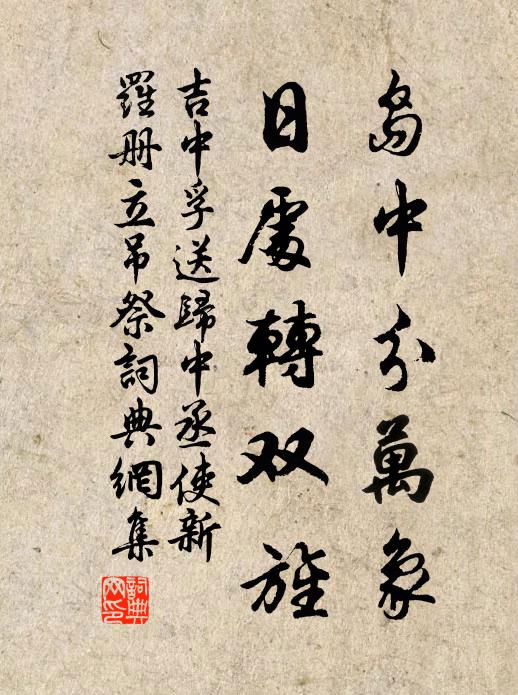 島中分萬象
日處轉双旌
吉中孚送歸中丞使新
羅册立吊祭詞典網集